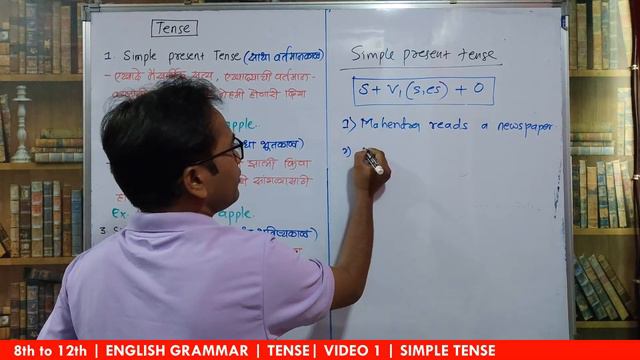 Tense
1. Simple present Tense (साधा वर्तमानकाळ)
- एखादे नैसर्गिक सत्य, एखाद्याची वर्तमान-
नेहमी होणारी क्रिया
apple.
साधा भूतकाळ)
झाली किंवा
सांगण्यासाठी
हो
Ex. apple.
3. S भविष्यकाळ)
Simple present tense
S + V₁ (s, es) + O
1) Mahendra reads a newspaper
2)
8th to 12th | ENGLISH GRAMMAR | TENSE| VIDEO 1 | SIMPLE TENSE